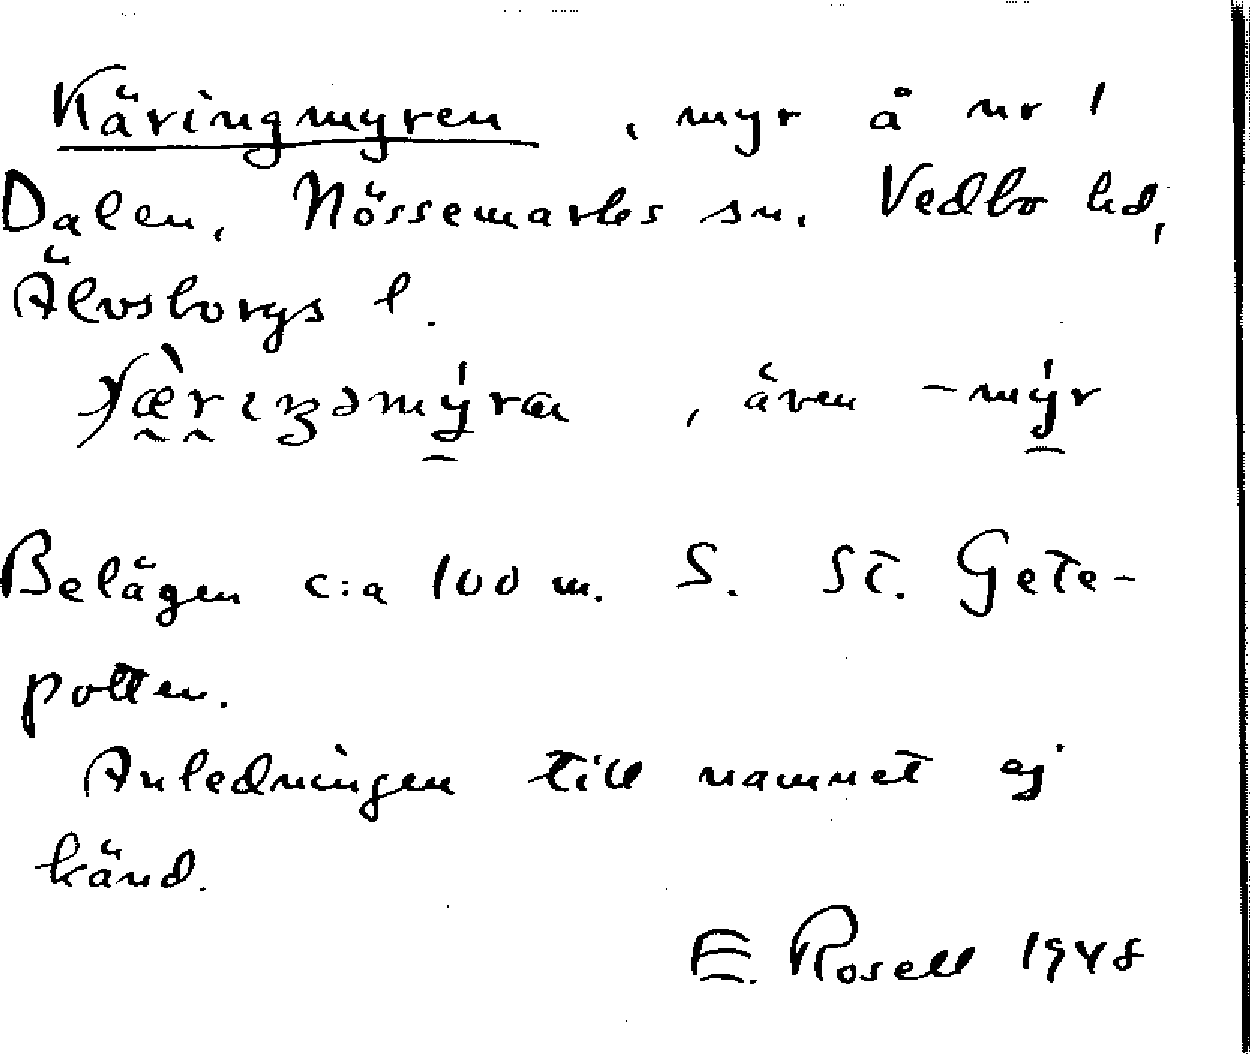 Käringmyren, myr å nr 1
Dalen, Nössemarks sn. Vedbo hd,
Älvsborgs l.
, även -mý̱r
Belägen c:a 100 m. S. St. Gete-
potten.
Anledningen till namnet ej
känd.
E. Rosell 1948